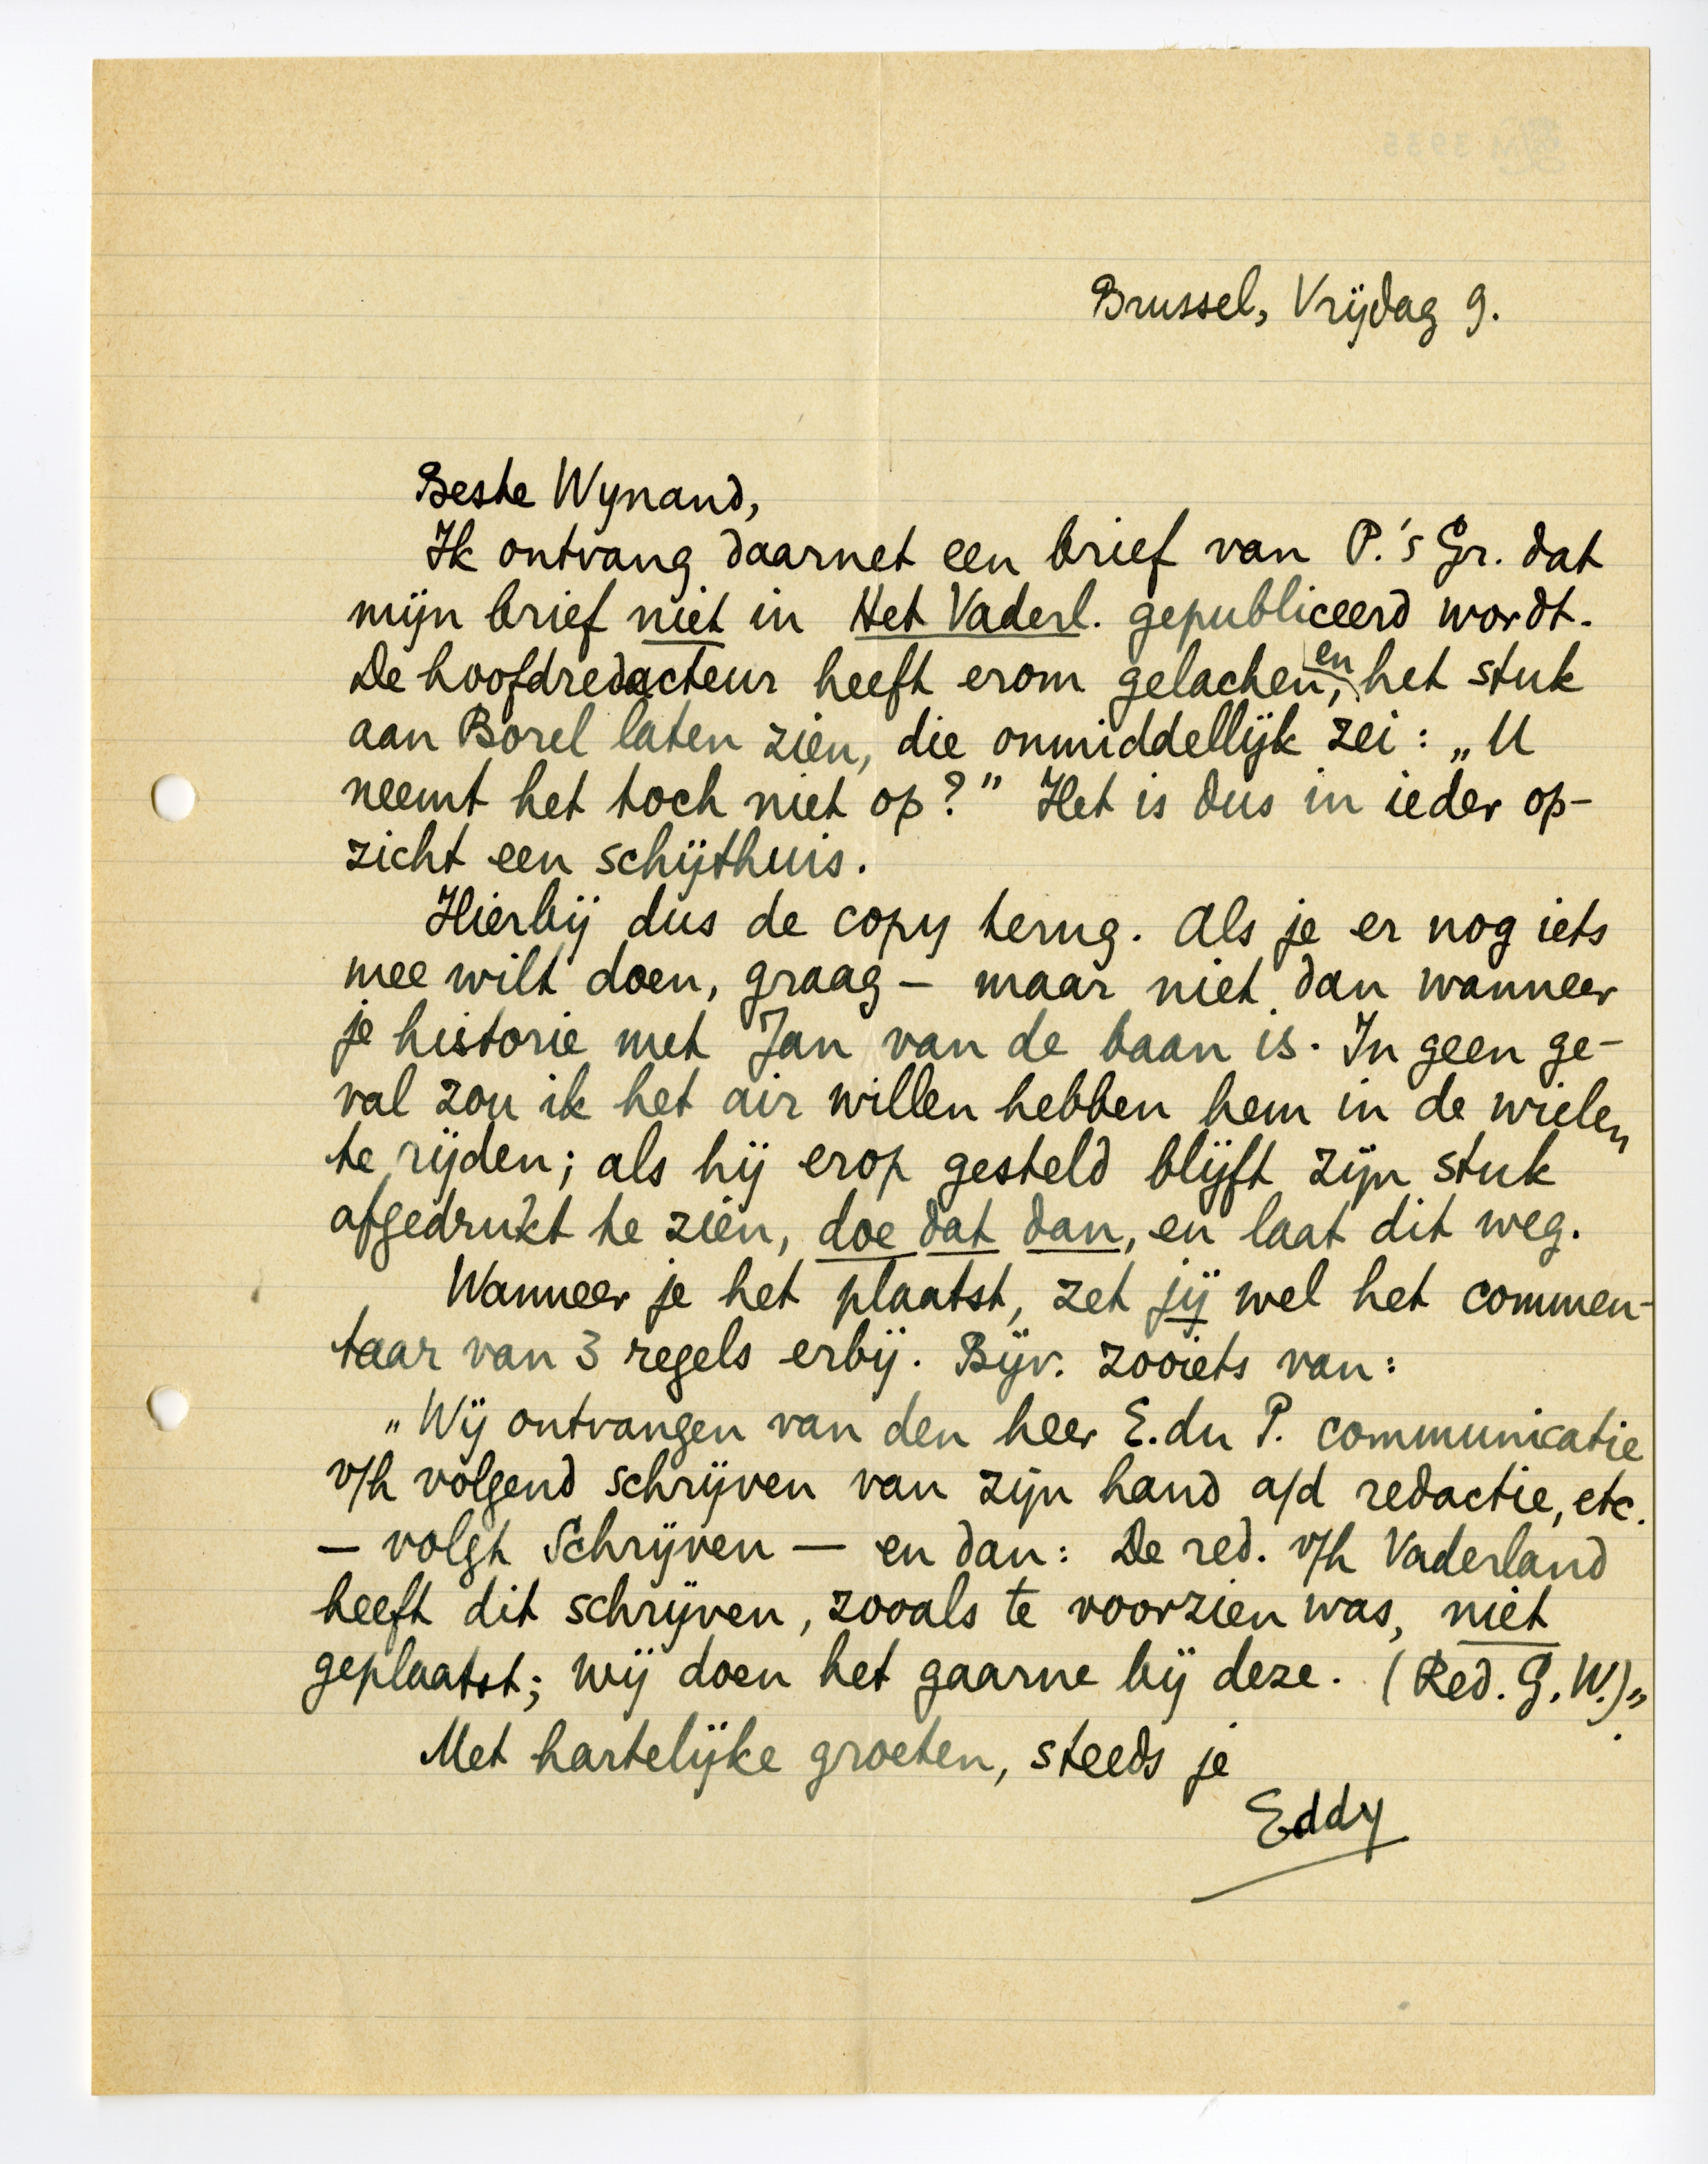 Brussel, Vrijdag 9.
Beste Wynand,
Ik ontvang daarnet een brief van P.'s Gr. dat
mijn brief niet in Het Vaderl. gepubliceerd wordt.
De hoofdredacteur heeft erom gelachen, en het stuk
aan Borel laten zien, die onmiddellijk zei: „U
neemt het toch niet op?” Het is dus in ieder op-
zicht een schijthuis.
Hierbij dus de copy terug. Als je er nog iets
mee wilt doen, graag – maar niet dan wanneer
je historie met Jan van de baan is. In geen ge-
val zou ik het air willen hebben hem in de wielen
te rijden; als hij erop gesteld blijft zijn stuk
afgedrukt te zien, doe dat dan, en laat dit weg.
Wanneer je het plaatst, zet jij wel het commen-
taar van 3 regels erbij. Bijv. zooiets van:
„Wij ontvangen van den heer E. du P. communicatie
v/h volgend schrijven van zijn hand a/d redactie, etc.
— volgt Schrijven — en dan: De red. v/h Vaderland
heeft dit schrijven, zooals te voorzien was, niet
geplaatst; wij doen het gaarne bij deze. (Red. G.W.)”.
Met hartelijke groeten, steeds je
Eddy